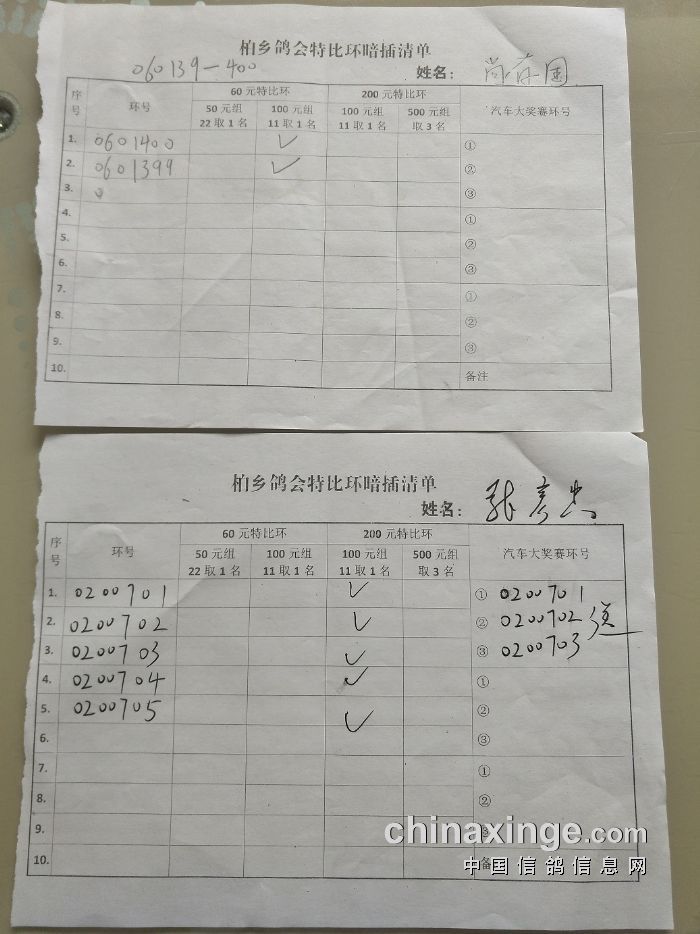 柏乡鸽会特比环暗插清单
060139-400
姓名： 尚
序号 环号 60元特比环 200元特比环 汽车大奖赛环号
50元组 22取1名 100元组 11取1名 100元组 11取1名 500元组 取3名
1. 0601400 ✓ ①
2. 0601399 ✓ ②
3. 0 ③
4. ①
5. ②
6. ③
7. ①
8. ②
9. ③
10. 备注
柏乡鸽会特比环暗插清单
姓名： 张彦
序号 环号 60元特比环 200元特比环 汽车大奖赛环号
50元组 22取1名 100元组 11取1名 100元组 11取1名 500元组 取3名
1. 0200701 ✓ ① 0200701
2. 0200702 ✓ ② 0200702 送
3. 0200703 ✓ ③ 0200703
4. 0200704 ✓ ①
5. 0200705 ✓ ②
6. ③
7. ①
8. ②
9. ③
10. 备
chinaxinge.com
中国信鸽信息网